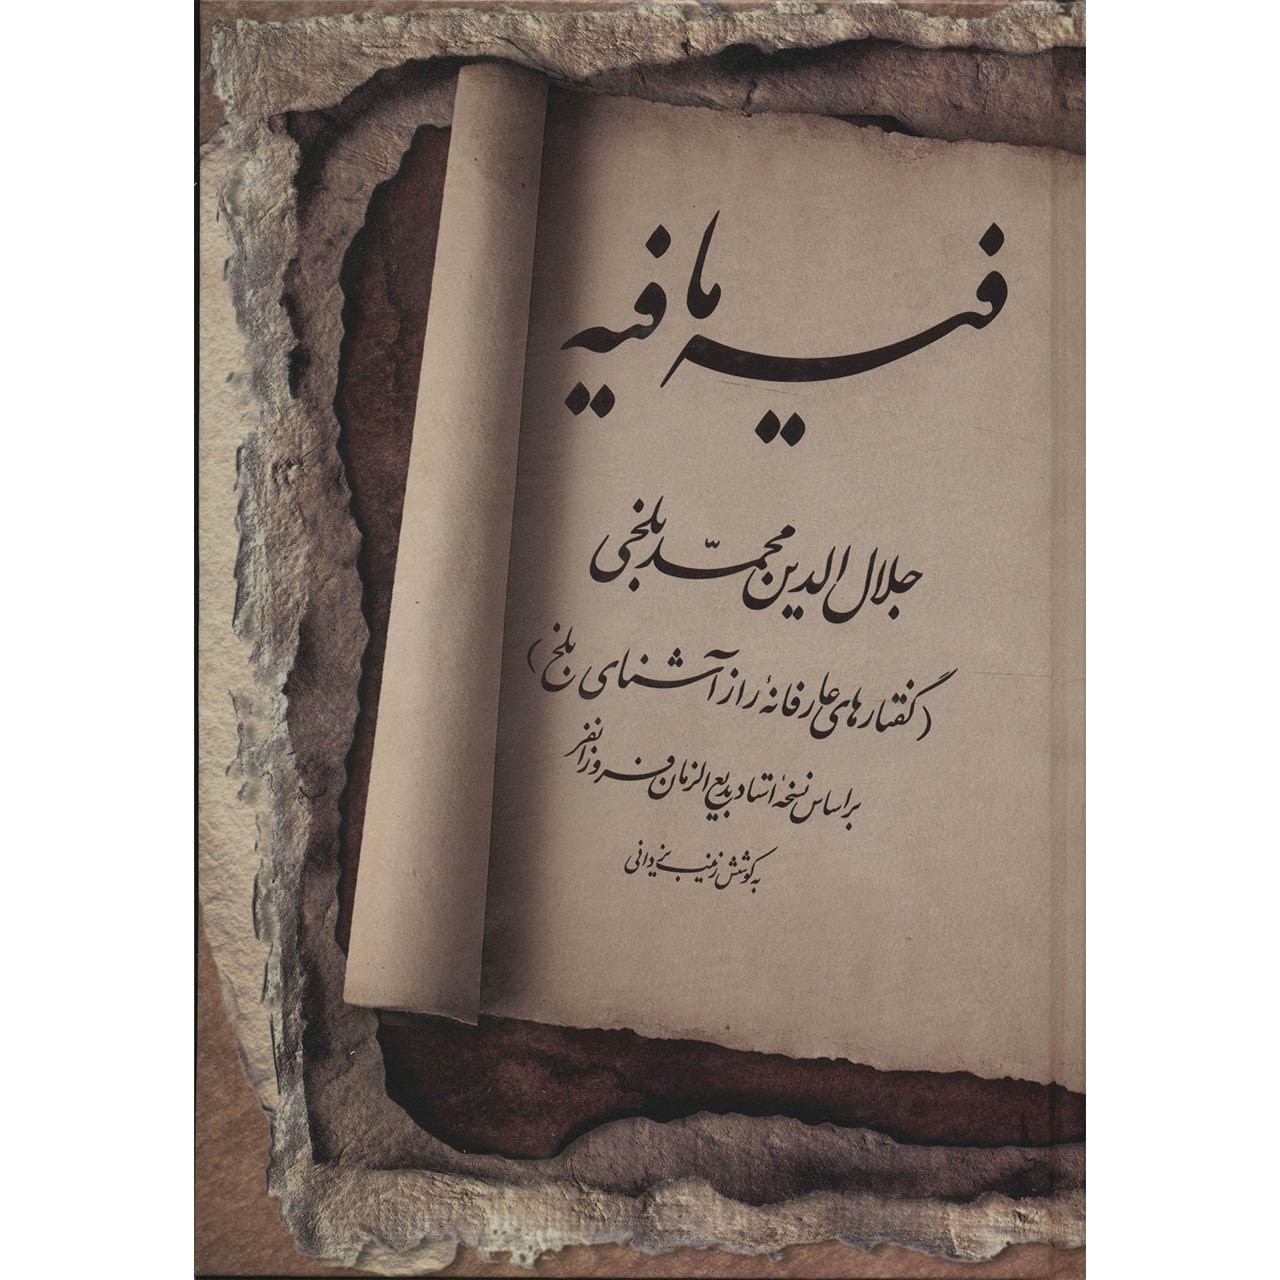 فیه ما فیه
جلال الدین محمّد بلخی
(گفتارهای عارفانهٔ راز آشنای بلخ)
بر اساس نسخهٔ استاد بدیع الزمان فروزانفر
به کوشش زینب یزدانی